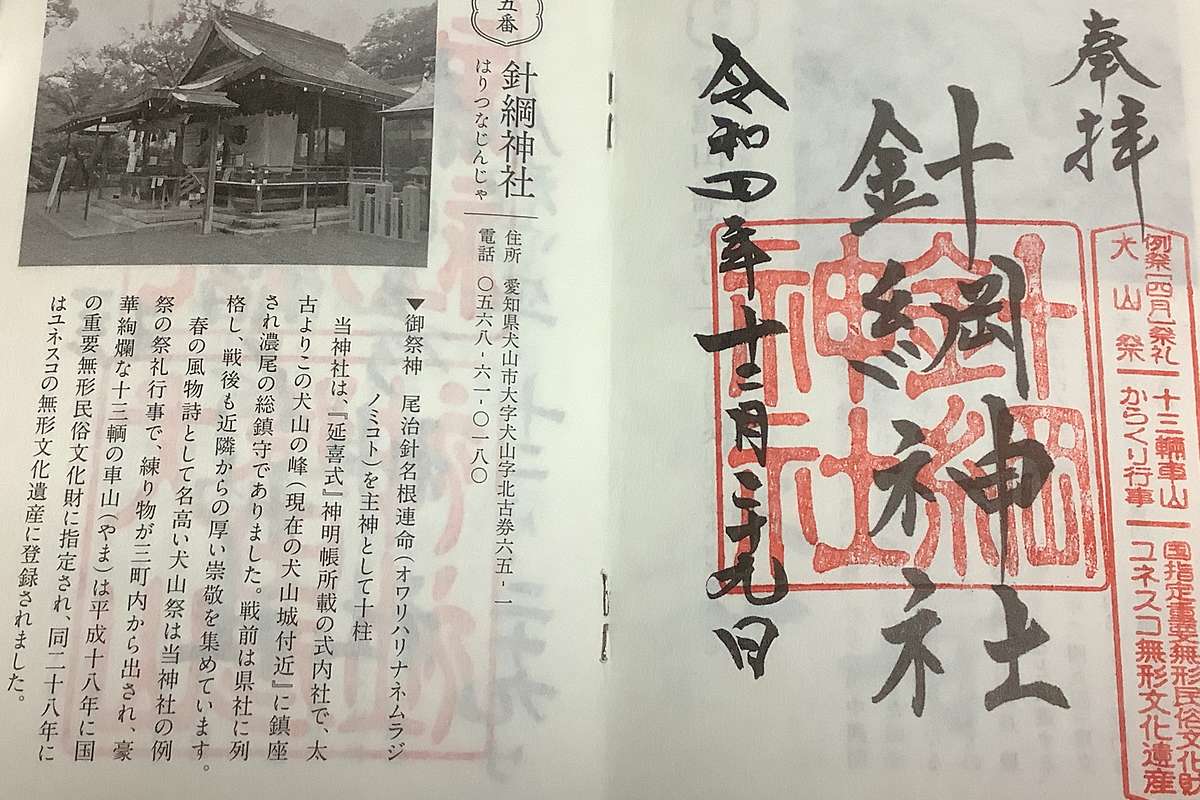 奉拝
針綱神社
令和四年十二月二十九日
針綱
神社
例祭[四月]祭礼 十三輛車山 国指定重要無形民俗文化財
犬山祭 からくり行事 ユネスコ無形文化遺産
五番
針綱神社
はりつなじんじゃ
住所 愛知県犬山市大字犬山字北古券六五-一
電話 〇五六八-六一-〇一八〇
▼御祭神 尾治針名根連命(オワリハリナネムラジ
ノミコト)を主神として十柱
当神社は、『延喜式』神明帳所載の式内社で、太
古よりこの犬山の峰(現在の犬山城付近)に鎮座
され濃尾の総鎮守でありました。戦前は県社に列
格し、戦後も近隣からの厚い崇敬を集めています。
春の風物詩として名高い犬山祭は当神社の例
祭の祭礼行事で、練り物が三町内から出され、豪
華絢爛な十三輌の車山(やま)は平成十八年に国
の重要無形民俗文化財に指定され、同二十八年に
はユネスコの無形文化遺産に登録されました。